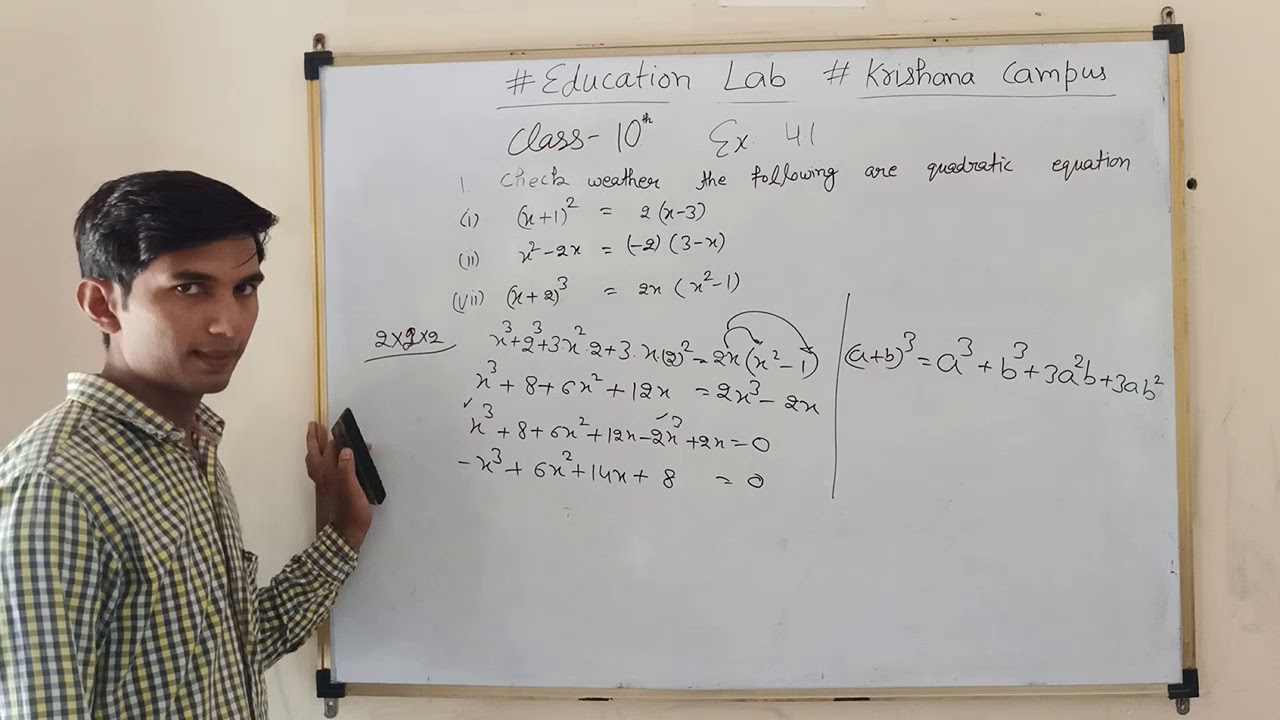 # Education Lab # Krishana Campus
Class - 10th Ex. 4.1
1. Check weather the following are quadratic equation
(i) (x+1)² = 2(x-3)
(ii) x²-2x = (-2)(3-x)
(vii) (x+2)³ = 2x(x²-1)
2×2×2 x³+2³+3·x²·2+3·x(2)²=2x(x²-1) (a+b)³=a³+b³+3a²b+3ab²
x³+8+6x²+12x = 2x³-2x
x³+8+6x²+12x-2x³+2x=0
-x³+6x²+14x+8 = 0